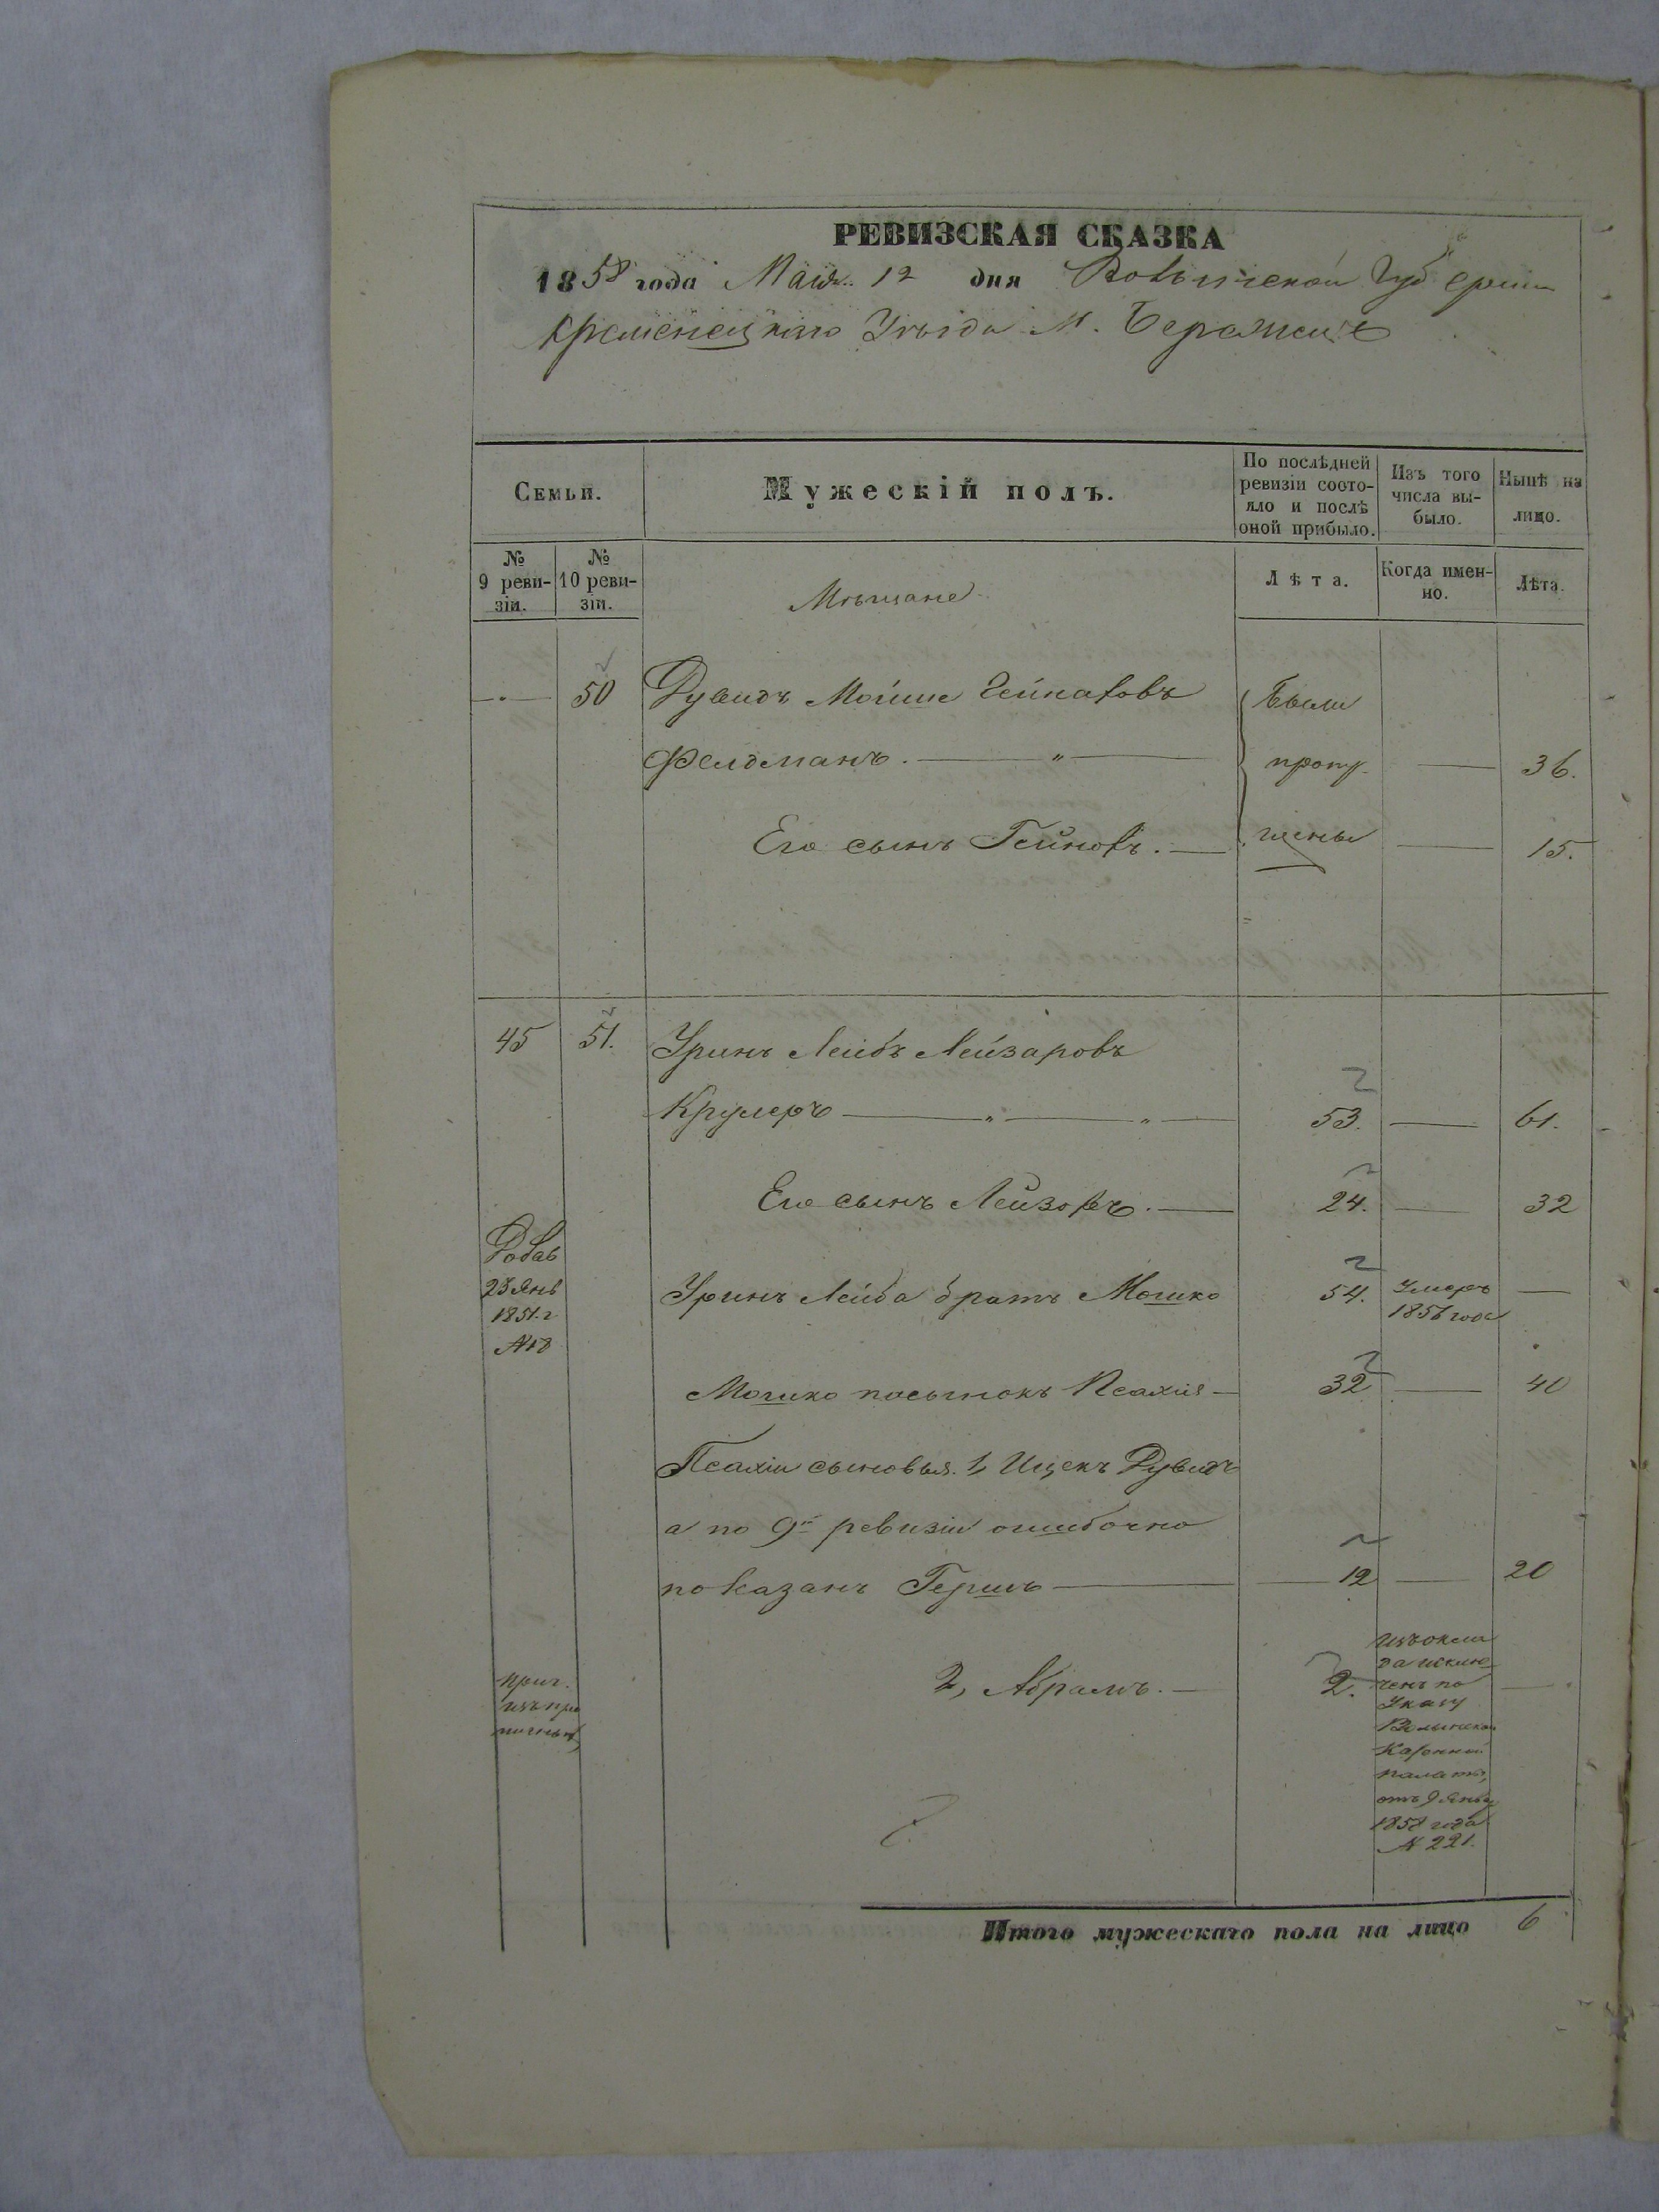 РЕВИЗСКАЯ СКАЗКА
1858 года Мая 12 дня Волынской Губерніи
Кременецкаго Уѣзда М. Бережецъ
Семьи.
Мужескій полъ.
По послѣдней ревизіи состояло и послѣ оной прибыло.
Изъ того числа выбыло.
Нынѣ на лицо.
№ 9 ревизіи.
№ 10 ревизіи.
Мѣщане
Лѣта.
Когда именно.
Лѣта.
50 Дувидъ Мойше Гейнаховъ Были
Фелдманъ. — " — пропу — 36.
Его сынъ Гейнохъ. — щены — 15.
45 51. Уринъ Лейбъ Лейзаровъ
Крулеръ — " — " — 53. — 61.
Его сынъ Лейзоръ. — 24. — 32
Добав
23 Янв
1851 г
№18
Уринъ Лейба братъ Мошко 54. Умеръ —
1856 года
Мошко пасынокъ Псахія — 32 — 40
Псахіи сыновья. 1, Ицекъ Дувидъ
а по 9й ревизіи ошибочно
показанъ Гершъ — 12 — 20
прич.
2, Абрамъ. — 2.
изъ окла
да исклю
ченъ по
Указу
Волынской
Казенной
палаты,
отъ 9 Янв
1858 года
№ 221.
—
Итого мужескаго пола на лицо 6